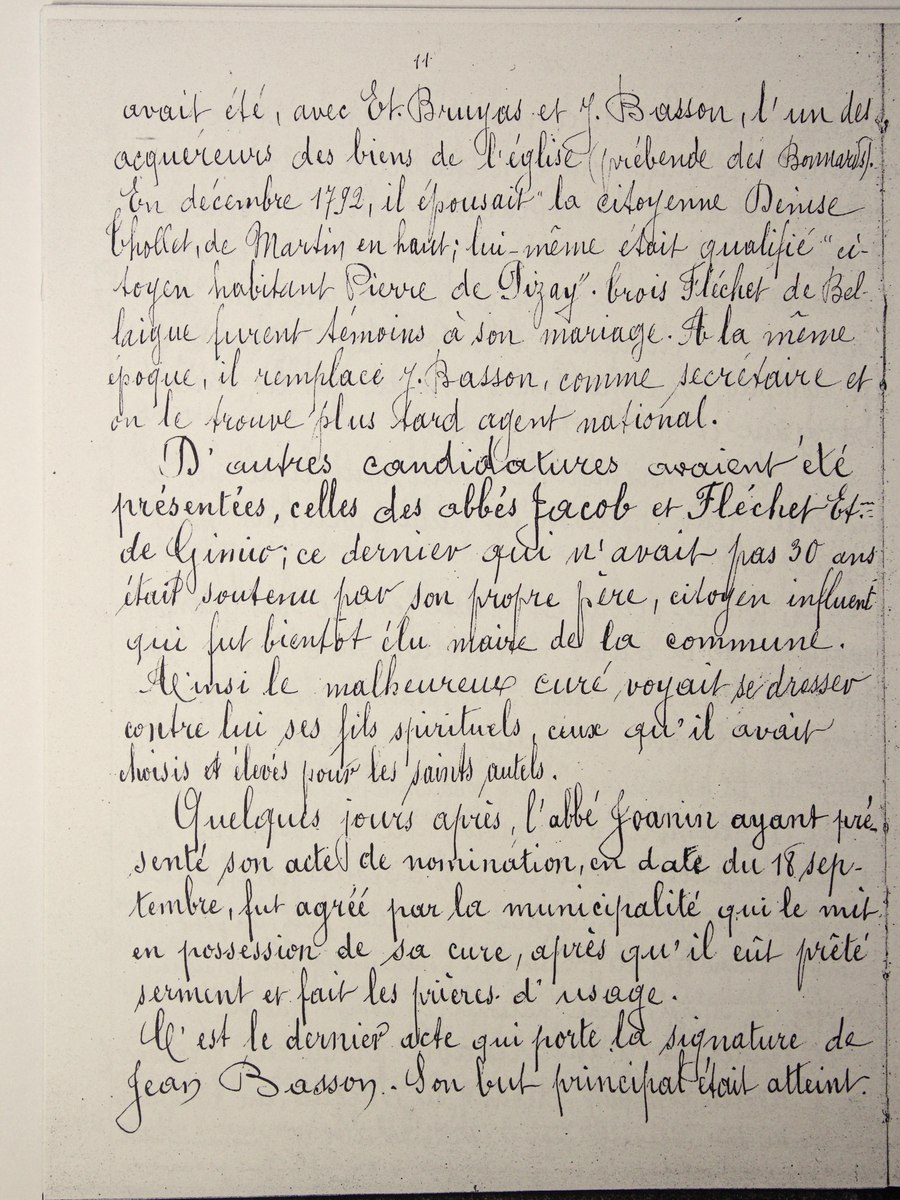 11
avait été, avec Et. Bruyas et J. Basson, l'un des
acquéreurs des biens de l'église (prébende des Bonnards).
En décembre 1792, il épousait "la citoyenne Denise
Chollet, de Martin en haut; lui-même était qualifié "ci-
toyen habitant Pierre de Pizay". Trois Fléchet de Bel-
laigue furent témoins à son mariage. A la même
époque, il remplace J. Basson, comme secrétaire et
on le trouve plus tard agent national.
D'autres candidatures avaient été
présentées, celles des abbés Jacob et Fléchet Et.
de Gimio; ce dernier qui n'avait pas 30 ans
était soutenu par son propre père, citoyen influent
qui fut bientôt élu maire de la commune.
Ainsi le malheureux curé voyait se dresser
contre lui ses fils spirituels, ceux qu'il avait
choisis et élevés pour les saints autels.
Quelques jours après, l'abbé Joanin ayant pré-
senté son acte de nomination, en date du 18 sep-
tembre, fut agréé par la municipalité qui le mit
en possession de sa cure, après qu'il eût prêté
serment et fait les prières d'usage.
C'est le dernier acte qui porte la signature de
Jean Basson. Son but principal était atteint.